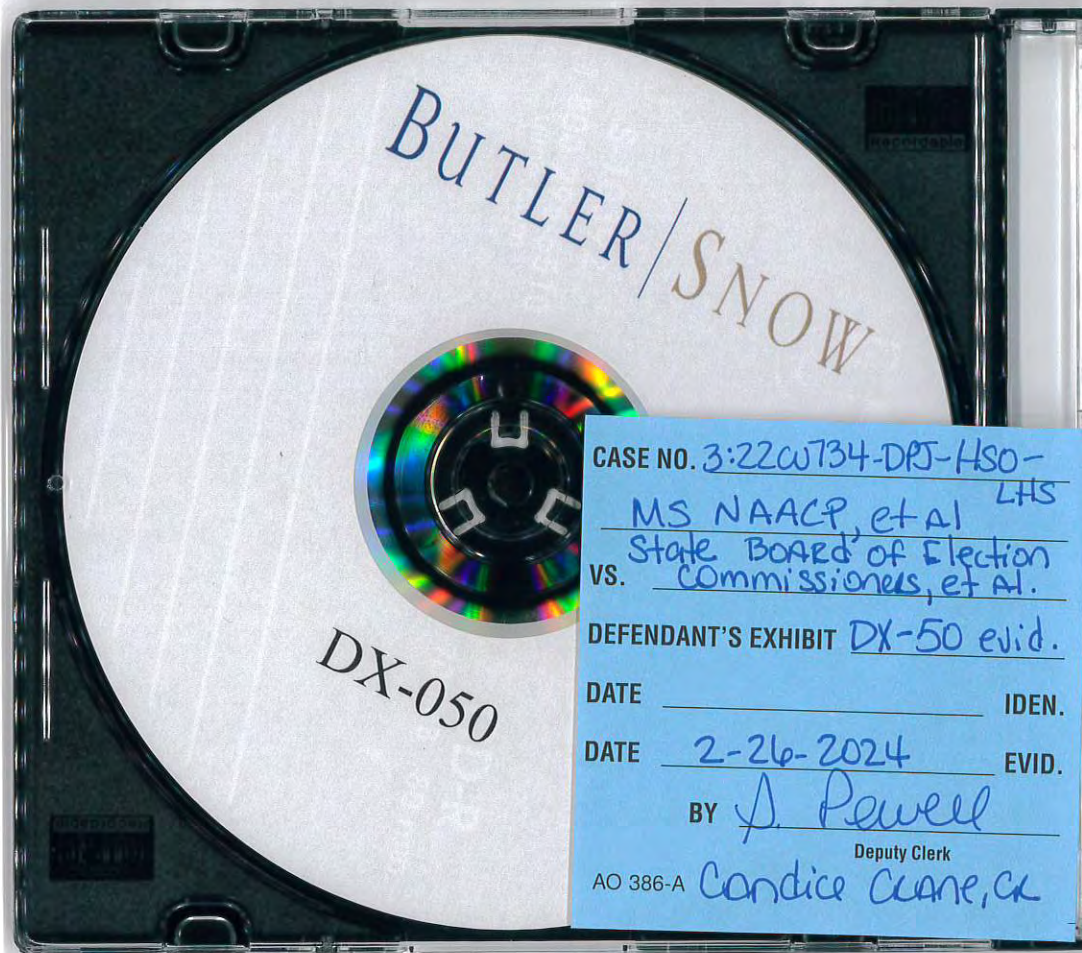 BUTLER | SNOW
Recordable
DX-050
CASE NO. 3:22CV734-DPJ-HSO-
LHS
MS NAACP, et Al
State BOARd of Election
VS. Commissioners, et Al.
DEFENDANT'S EXHIBIT DX-50 evid.
DATE IDEN.
DATE 2-26-2024 EVID.
BY Powell
Deputy Clerk
AO 386-A Candice CRANe, CR